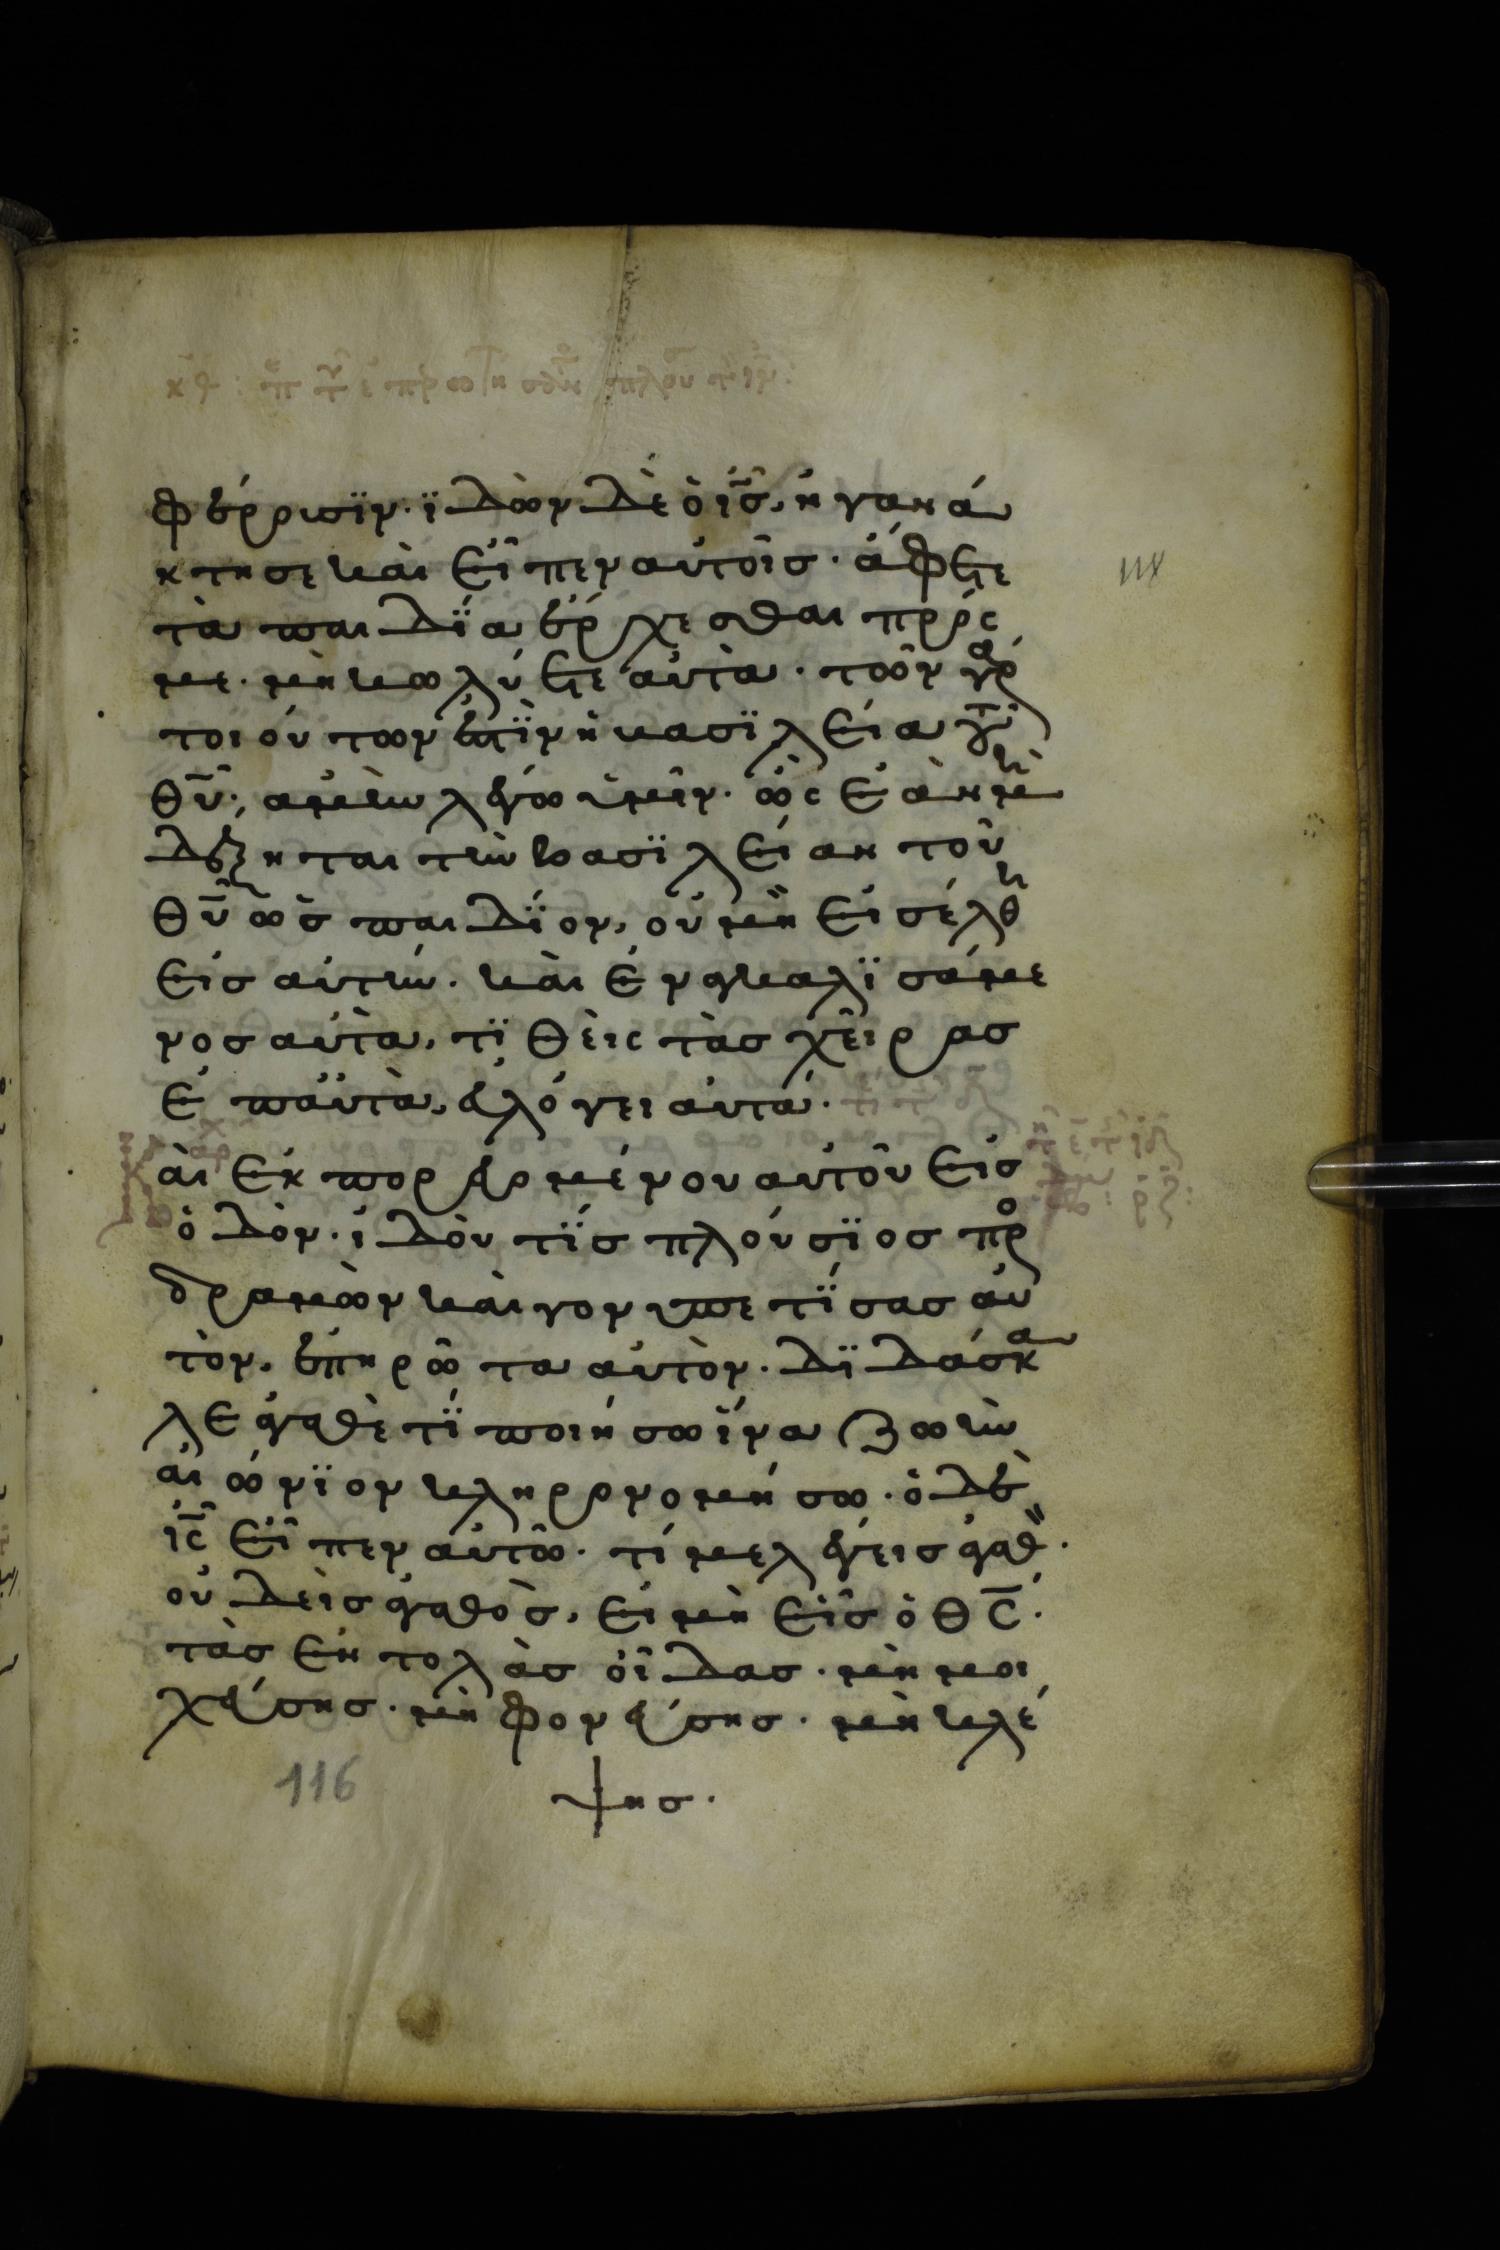 φέρρουσϊν· ϊδὼν δὲ ὁ ις̅, ἠγανά
κτησε καὶ εἶπεν αὐτοῖσ· ἄφετε
τὰ παιδΐα ἔρχεσθαι πρός
με· μὴ κωλύετε αὐτὰ· τῶν γὰρ
τοιούτων ἐστϊν ἡ βασϊλεία τοῦ
θυ̅· ἀμὴν λέγω ὑμῖν· ὃς ἐὰν μὴ
δέξηται τὴν βασϊλείαν τοῦ
θυ̅ ὡς παιδΐον, οὐ μὴ εἰσέλθη
εἰσ αὐτήν· καὶ ἐναγκαλϊσάμε
νοσ αὐτὰ, τϊθεὶς τὰσ χεῖρασ
ἐπ αὐτὰ, εὐλόγει αὐτά·
αὶ ἐκπορευομένου αὐτοῦ εἰσ
ὁδόν· ἰδοὺ τΐσ πλούσϊοσ προσ
δραμὼν καὶ γονυπετΐσασ αὐ
τὸν, ἐπηρῶτα αὐτὸν· δϊδάσκα
λε ἀγαθὲ τΐ ποιήσω ἵνα ζωὴν
αἰώνϊον κληρρονομήσω· ὁ δὲ
ις̅ εἶπεν αὐτῶ· τί με λέγεισ ἀγαθὸν·
οὐδεὶσ ἀγαθὸσ, εἰ μὴ εἷσ ὁ θς̅·
τὰσ ἐντολὰσ οἶδασ· μὴ μοι
χεύσησ· μὴ φονεύσησ· μὴ κλέ
116
ψησ·